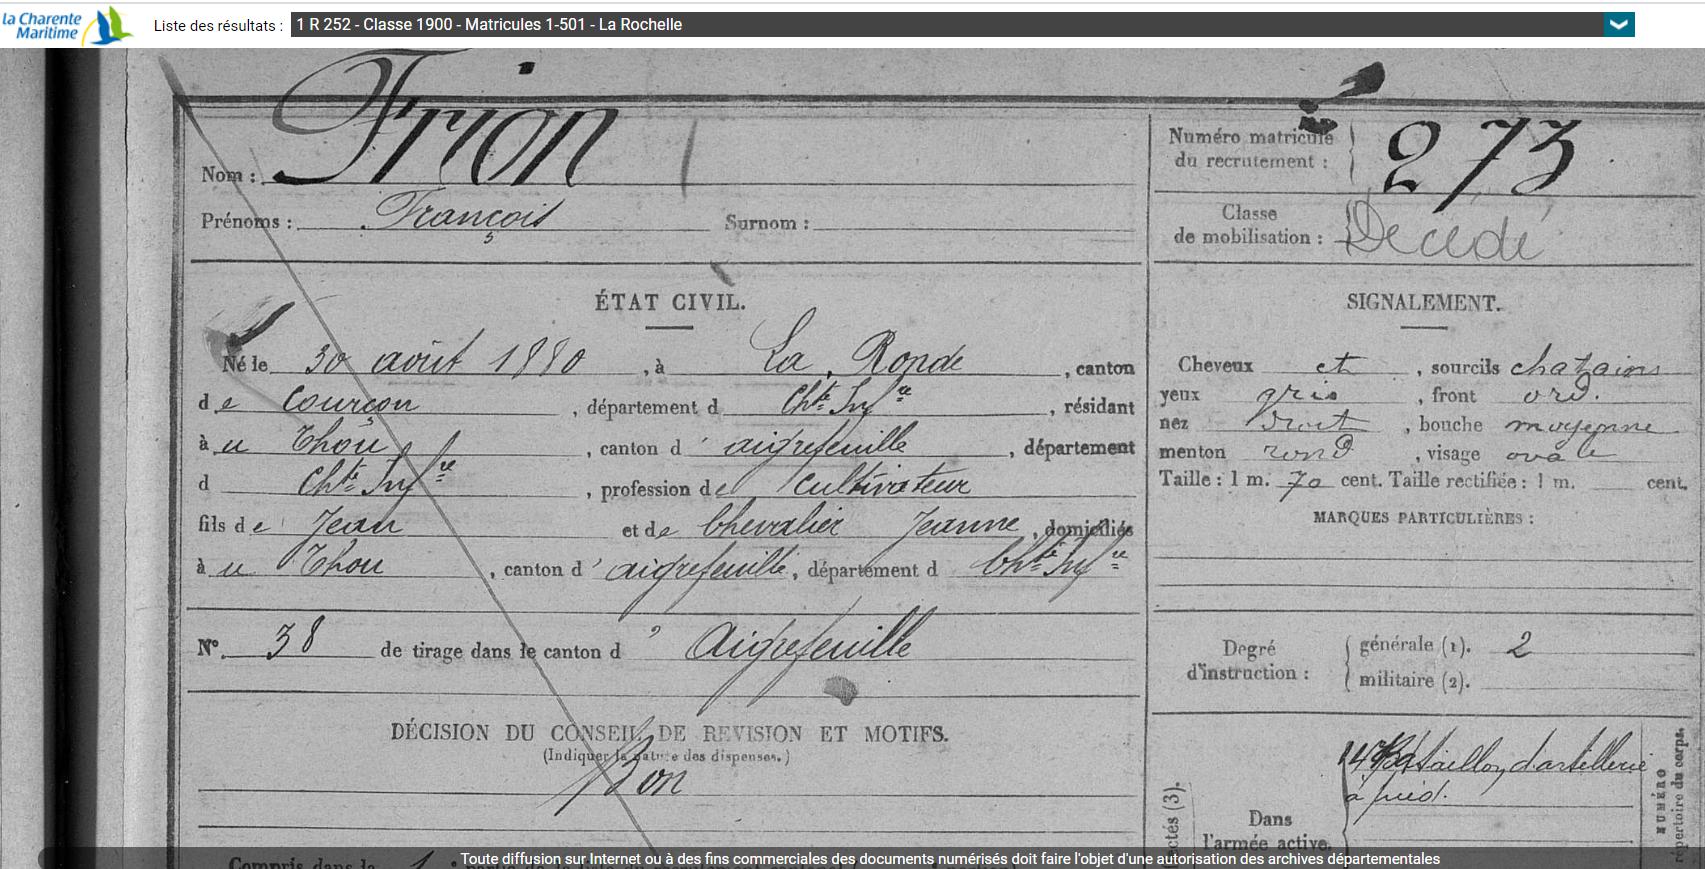 la Charente
Maritime
Liste des résultats :
1 R 252 - Classe 1900 - Matricules 1-501 - La Rochelle
Nom : Frion
Prénoms : François Surnom :
Numéro matricule
du recrutement : 273
Classe
de mobilisation : Décédé
ÉTAT CIVIL.
Né le 30 août 1880, à La Ronde, canton
de Courçon, département d Chte Infre, résidant
à u Thou, canton d'aigrefeuille, département
d Chte Infre, profession de cultivateur
fils de Jean et de Chevalier Jeanne, domiciliés
à u Thou, canton d'aigrefeuille, département d Chte Infre
N° 38 de tirage dans le canton d'Aigrefeuille
DÉCISION DU CONSEIL DE REVISION ET MOTIFS.
(Indiquer la nature des dispenses.)
Bon
Compris dans la
SIGNALEMENT.
Cheveux et, sourcils chatains
yeux gris, front ord.
nez Droit, bouche moyenne
menton rond, visage ovale
Taille : 1 m. 70 cent. Taille rectifiée : 1 m. cent.
MARQUES PARTICULIÈRES :
Degré
d'instruction :
générale (1). 2
militaire (2).
Bataillon d'artillerie
à pied.
Dans
l'armée active.
NUMÉRO
répertoire du corps.
Toute diffusion sur Internet ou à des fins commerciales des documents numérisés doit faire l'objet d'une autorisation des archives départementales